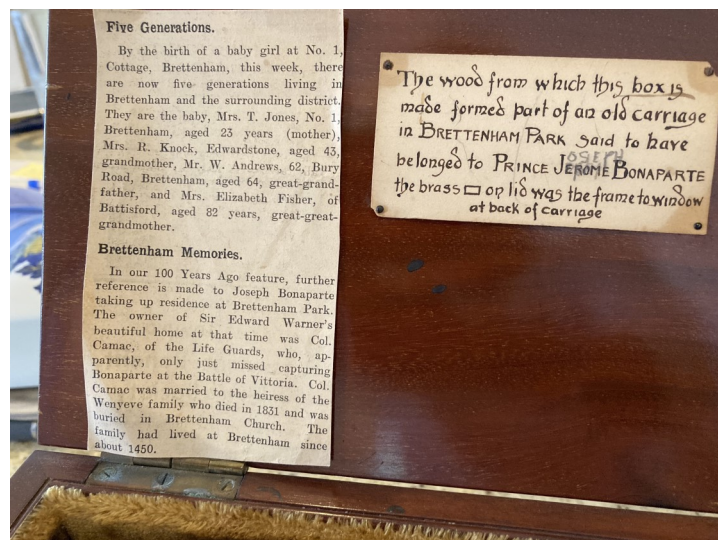 Five Generations.
By the birth of a baby girl at No. 1,
Cottage, Brettenham, this week, there
are now five generations living in
Brettenham and the surrounding district.
They are the baby, Mrs. T. Jones, No. 1,
Brettenham, aged 23 years (mother),
Mrs. R. Knock, Edwardstone, aged 43,
grandmother, Mr. W. Andrews, 62, Bury
Road, Brettenham, aged 64, great-grand-
father, and Mrs. Elizabeth Fisher, of
Battisford, aged 82 years, great-great-
grandmother.
Brettenham Memories.
In our 100 Years Ago feature, further
reference is made to Joseph Bonaparte
taking up residence at Brettenham Park.
The owner of Sir Edward Warner's
beautiful home at that time was Col.
Camac, of the Life Guards, who, ap-
parently, only just missed capturing
Bonaparte at the Battle of Vittoria. Col.
Camac was married to the heiress of the
Wenyeve family who died in 1831 and was
buried in Brettenham Church. The
family had lived at Brettenham since
about 1450.
The wood from which this box is
made formed part of an old carriage
in BRETTENHAM PARK said to have
JOSEPH
belonged to PRINCE JEROME BONAPARTE
the brass on lid was the frame to window
at back of carriage